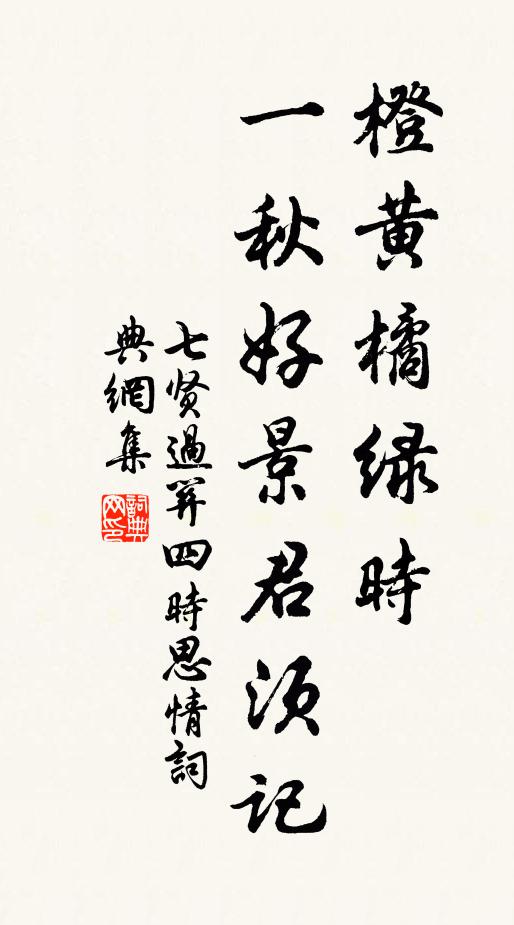 橙黄橘緑時
一秋好景君須記
七贤過关四時思情詞
典網集
詞典網印